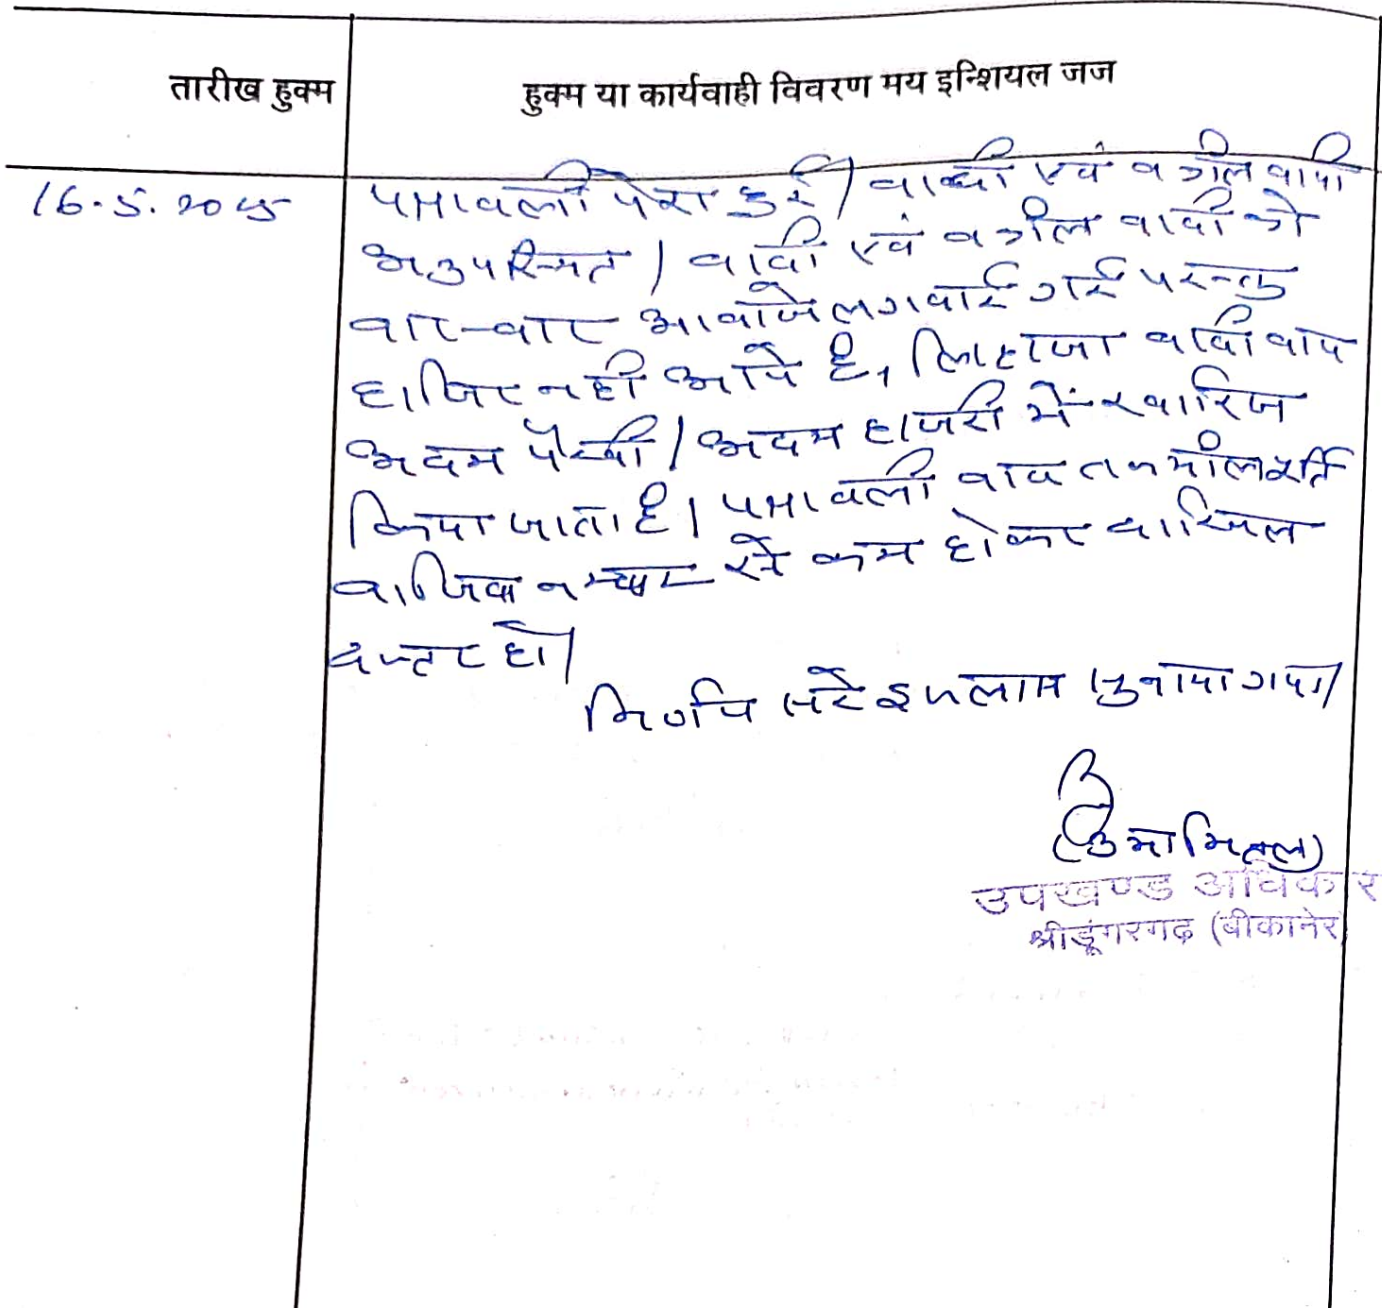 तारीख हुक्म
हुक्म या कार्यवाही विवरण मय इन्शियल जज
16.5.2025
पत्रावली पेश हुई। वादी एवं वकील वादी
अनुपस्थित। वादी एवं वकील वादी को
बार-बार आवाजे लगवाई गई परन्तु
हाजिर नही आये है, लिहाजा वादी वाद
अदम पैरवी/अदम हाजरी में खारिज
किया जाता है। पत्रावली बाद तकमील शर्त
वाजिब नम्बर से कम होकर दाखिल
दफ्तर हो।
निर्णय सरे इजलास सुनाया गया।
(उमा मित्तल)
उपखण्ड अधिकार
श्रीडूंगरगढ (बीकानेर)